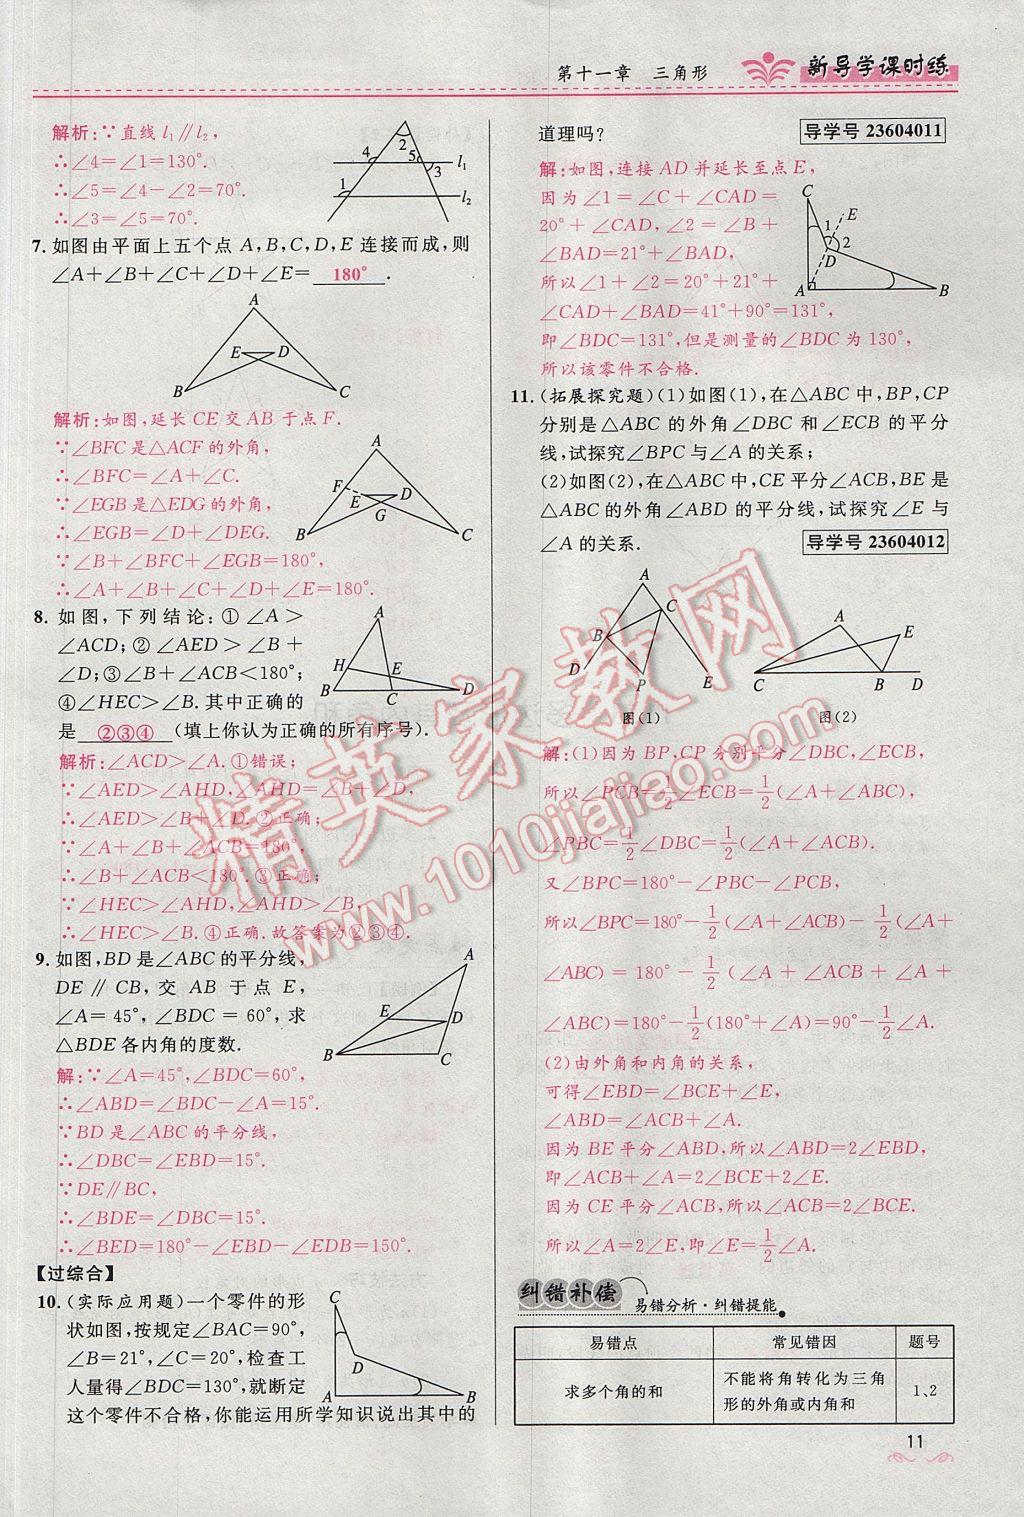 第十一章 三角形
新导学课时练
解析:∵直线 l₁∥l₂,
∴∠4=∠1=130°.
∴∠5=∠4-∠2=70°.
∴∠3=∠5=70°.
2
4
5
3
l₁
1
l₂
7. 如图由平面上五个点 A,B,C,D,E 连接而成,则
∠A+∠B+∠C+∠D+∠E= 180° .
A
E
D
B
C
解析:如图,延长 CE 交 AB 于点 F.
∵∠BFC 是△ACF 的外角,
∴∠BFC=∠A+∠C.
∵∠EGB 是△EDG 的外角,
∴∠EGB=∠D+∠DEG.
∵∠B+∠BFC+∠EGB=180°,
∴∠A+∠B+∠C+∠D+∠E=180°.
A
F
E
D
G
B
C
8. 如图,下列结论:①∠A>
∠ACD;②∠AED>∠B+
∠D;③∠B+∠ACB<180°;
④∠HEC>∠B.其中正确的
是 ②③④ (填上你认为正确的所有序号).
A
H
E
B
C
D
解析:∠ACD>∠A.①错误;
∵∠AED>∠AHD,∠AHD=∠B+∠D,
∴∠AED>∠B+∠D.②正确;
∵∠A+∠B+∠ACB=180°,
∴∠B+∠ACB<180°.③正确;
∵∠HEC>∠AHD,∠AHD>∠B,
∴∠HEC>∠B.④正确.故答案为②③④.
9. 如图,BD 是∠ABC 的平分线,
DE∥CB,交 AB 于点 E,
∠A=45°,∠BDC=60°,求
△BDE 各内角的度数.
A
E
D
B
C
解:∵∠A=45°,∠BDC=60°,
∴∠ABD=∠BDC-∠A=15°.
∵BD 是∠ABC 的平分线,
∴∠DBC=∠EBD=15°.
∵DE∥BC,
∴∠BDE=∠DBC=15°.
∴∠BED=180°-∠EBD-∠EDB=150°.
【过综合】
10. (实际应用题)一个零件的形
状如图,按规定∠BAC=90°,
∠B=21°,∠C=20°,检查工
人量得∠BDC=130°,就断定
这个零件不合格,你能运用所学知识说出其中的
C
D
A
B
道理吗?
导学号 23604011
解:如图,连接 AD 并延长至点 E,
因为∠1=∠C+∠CAD=
20°+∠CAD,∠2=∠B+
∠BAD=21°+∠BAD,
所以∠1+∠2=20°+21°+
∠CAD+∠BAD=41°+90°=131°,
即∠BDC=131°,但是测量的∠BDC 为 130°,
所以该零件不合格.
C
1
E
2
D
A
B
11. (拓展探究题)(1)如图(1),在△ABC 中,BP,CP
分别是△ABC 的外角∠DBC 和∠ECB 的平分
线,试探究∠BPC 与∠A 的关系;
(2)如图(2),在△ABC 中,CE 平分∠ACB,BE 是
∠ABC 的外角∠ABD 的平分线,试探究∠E 与
∠A 的关系.
导学号 23604012
A
B
C
D
P
E
图(1)
A
E
C
B
D
图(2)
解:(1)因为 BP,CP 分别平分∠DBC,∠ECB,
所以∠PCB=1/2∠ECB=1/2(∠A+∠ABC),
∠PBC=1/2∠DBC=1/2(∠A+∠ACB).
又∠BPC=180°-∠PBC-∠PCB,
所以∠BPC=180°-1/2(∠A+∠ACB)-1/2(∠A+
∠ABC)=180°-1/2(∠A+∠ACB+∠A+
∠ABC)=180°-1/2(180°+∠A)=90°-1/2∠A.
(2)由外角和内角的关系,
可得∠EBD=∠BCE+∠E,
∠ABD=∠ACB+∠A.
因为 BE 平分∠ABD,所以∠ABD=2∠EBD,
即∠ACB+∠A=2∠BCE+2∠E.
因为 CE 平分∠ACB,所以∠ACB=2∠BCE,
所以∠A=2∠E,即∠E=1/2∠A.
纠错补偿
易错分析·纠错提能
易错点 常见错因 题号
求多个角的和 不能将角转化为三角形的外角或内角和 1、2
11
精英家教网
www.1010jiajiao.com